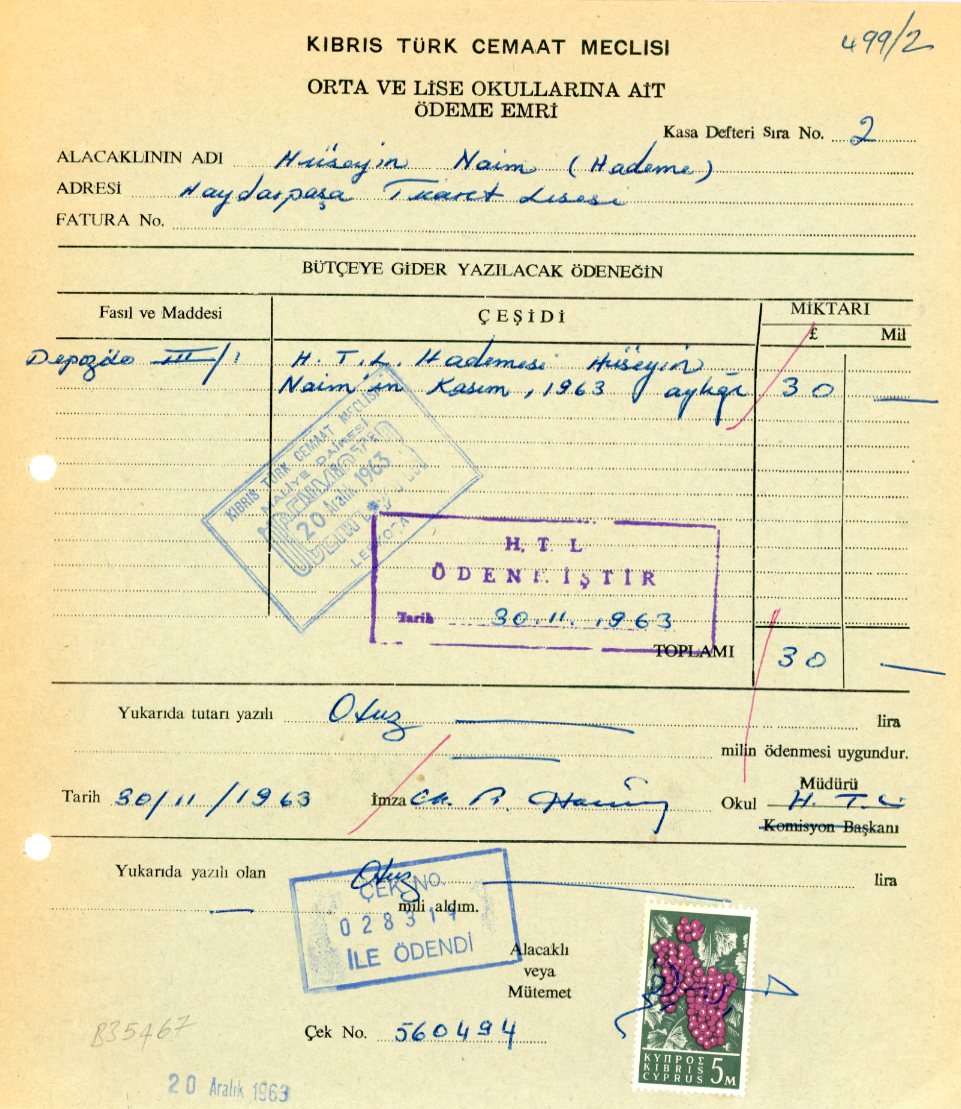 499/2
KIBRIS TÜRK CEMAAT MECLISI
ORTA VE LİSE OKULLARINA AİT
ÖDEME EMRİ
Kasa Defteri Sıra No. 2
ALACAKLININ ADI Hüseyin Naim (Hademe)
ADRESİ Haydarpaşa Ticaret Lisesi
FATURA No.
BÜTÇEYE GİDER YAZILACAK ÖDENEĞİN
Fasıl ve Maddesi
ÇEŞİDİ
MİKTARI
£ Mil
Depozito III/1 H. T. L. Hademesi Hüseyin
Naim'in Kasım, 1963 aylığı 30 —
KIBRIS TÜRK CEMAAT MECLİSİ
MALİYE DAİRESİ
20 Aralık 1963
LEFKOŞA
H. T. L
ÖDENMİŞTİR
Tarih 30.11.1963
TOPLAMI 30 —
Yukarıda tutarı yazılı Otuz — lira
— milin ödenmesi uygundur.
Tarih 30/11/1963 İmza Okul Müdürü
H. T. L.
Komisyon Başkanı
Yukarıda yazılı olan Otuz — lira
— mili aldım.
ÇEK NO.
İLE ÖDENDİ
Alacaklı
veya
Mütemet
Çek No. 560494
B35467
20 Aralık 1963
ΚΥΠΡΟΣ
KIBRIS
CYPRUS 5M